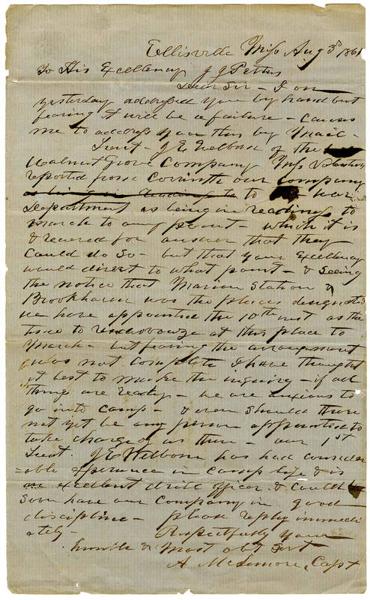 Ellisville Miss Aug 3d 1861
To His Excellency J J Pettus
Dear Sir - I on
yesterday addressed you by hand but
fearing it will be a failure - causes
me to address you thus by mail -
Lieut - J E Welborn of the
Walnut Grove Company Miss Volunteers
reported from Corinth our company
to War
Department as being in readiness to
march to any point - which it is
& received for answer that they
could do so - but that your Excellency
would direct to what point - & seeing
the notice that Marion Station &
Brookhaven was the places designated
we have appointed the 10th inst as the
time to rendezvouze at this place to
march - but fearing the arrangement
was not complete I have thought
it best to make the inquiry - if all
things are ready - we are anxious to
go into camp - & even should there
not yet be any person appointed to
take charge as there - our 1st
Lieut J E Welborn has had consider
able experience in camp life & is
an excellent drill officer & could
soon have our company in good
discipline - please reply immedi
ately - Respectfully your
humble & most obt svt
A McLemore, Capt